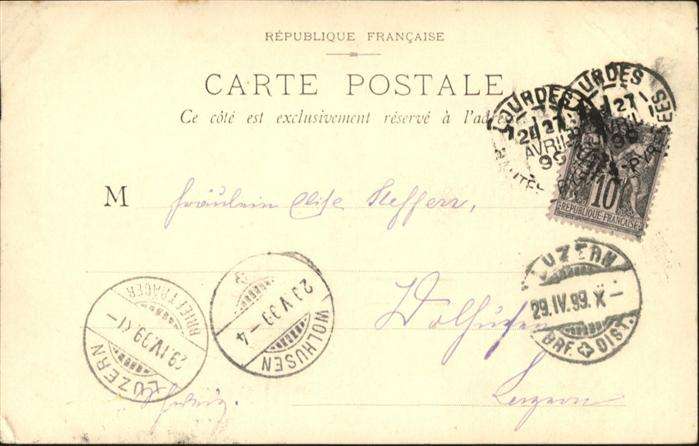 RÉPUBLIQUE FRANÇAISE
CARTE POSTALE
Ce côté est exclusivement réservé à l'adresse
LOURDES
27
AVRIL
99
HAUTES-
LOURDES
27
PYRÉNÉES
10
REPUBLIQUE FRANÇAISE
M Fräulein Elise Steffen,
LUZERN
29.IV.99.X-
BRF. DIST.
BRIEFTRÄGER
29.IV.99.XI-
LUZERN
WOLHUSEN
29.IV.99-4
Wolhusen
Luzern
Schweiz.